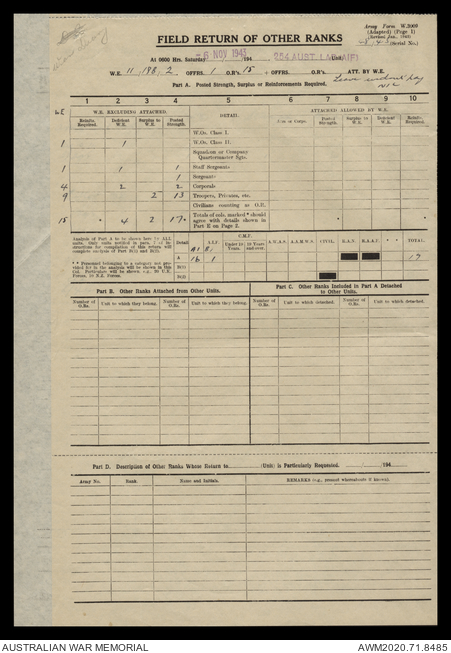 War Diary
Army Form W.3008
(Adapted) (Page 1)
(Revised Jan., 1943)
(Serial No.)
FIELD RETURN OF OTHER RANKS
At 0600 Hrs. Saturday 6 NOV 1943 194 254 AUST LAD (AIF) (Unit)
W.E. 11/198/2 OFFRS. 1 O.R's. 15 + OFFRS. O.R's. ATT. BY W.E.
Leave without pay
Part A. Posted Strength, Surplus or Reinforcements Required.
1 2 3 4 5 6 7 8 9 10
W.E. EXCLUDING ATTACHED. DETAIL ATTACHED ALLOWED BY W.E.
WE Reinfts. Required. Deficient W.E. Surplus to W.E. Posted Strength. Unit or Corps. Posted Strength. Surplus to W.E. Deficient W.E. Reinfts. Required.
W.Os. Class I.
1 1 W.Os. Class II.
Squadron or Company Quartermaster Sgts.
1 1 1 Staff Sergeants
1 Sergeants
4 2 2 Corporals
9 2 13 Troopers, Privates, etc.
Civilians counting as O.R.
15 * 4 2 17* Totals of cols. marked * should agree with details shown in Part E on Page 2. * *
Analysis of Part A to be shown here by ALL units.
Detail A.I.F. C.M.F. Under 19 Years. 19 Years and over. A.W.A.S. A.A.M.W.S. CIVIL. R.A.N. R.A.A.F. * * TOTAL.
A 16 1 17
B(1)
B(2)
Part B. Other Ranks Attached from Other Units. Part C. Other Ranks Included in Part A Detached to Other Units.
Number of O.Rs. Unit to which they belong. Number of O.Rs. Unit to which they belong. Number of O.Rs. Unit to which detached. Number of O.Rs. Unit to which detached.
Part D. Description of Other Ranks Whose Return to (Unit) is Particularly Requested. /194
Army No. Rank. Name and Initials. REMARKS (e.g., present whereabouts if known).
AUSTRALIAN WAR MEMORIAL AWM2020.71.8485